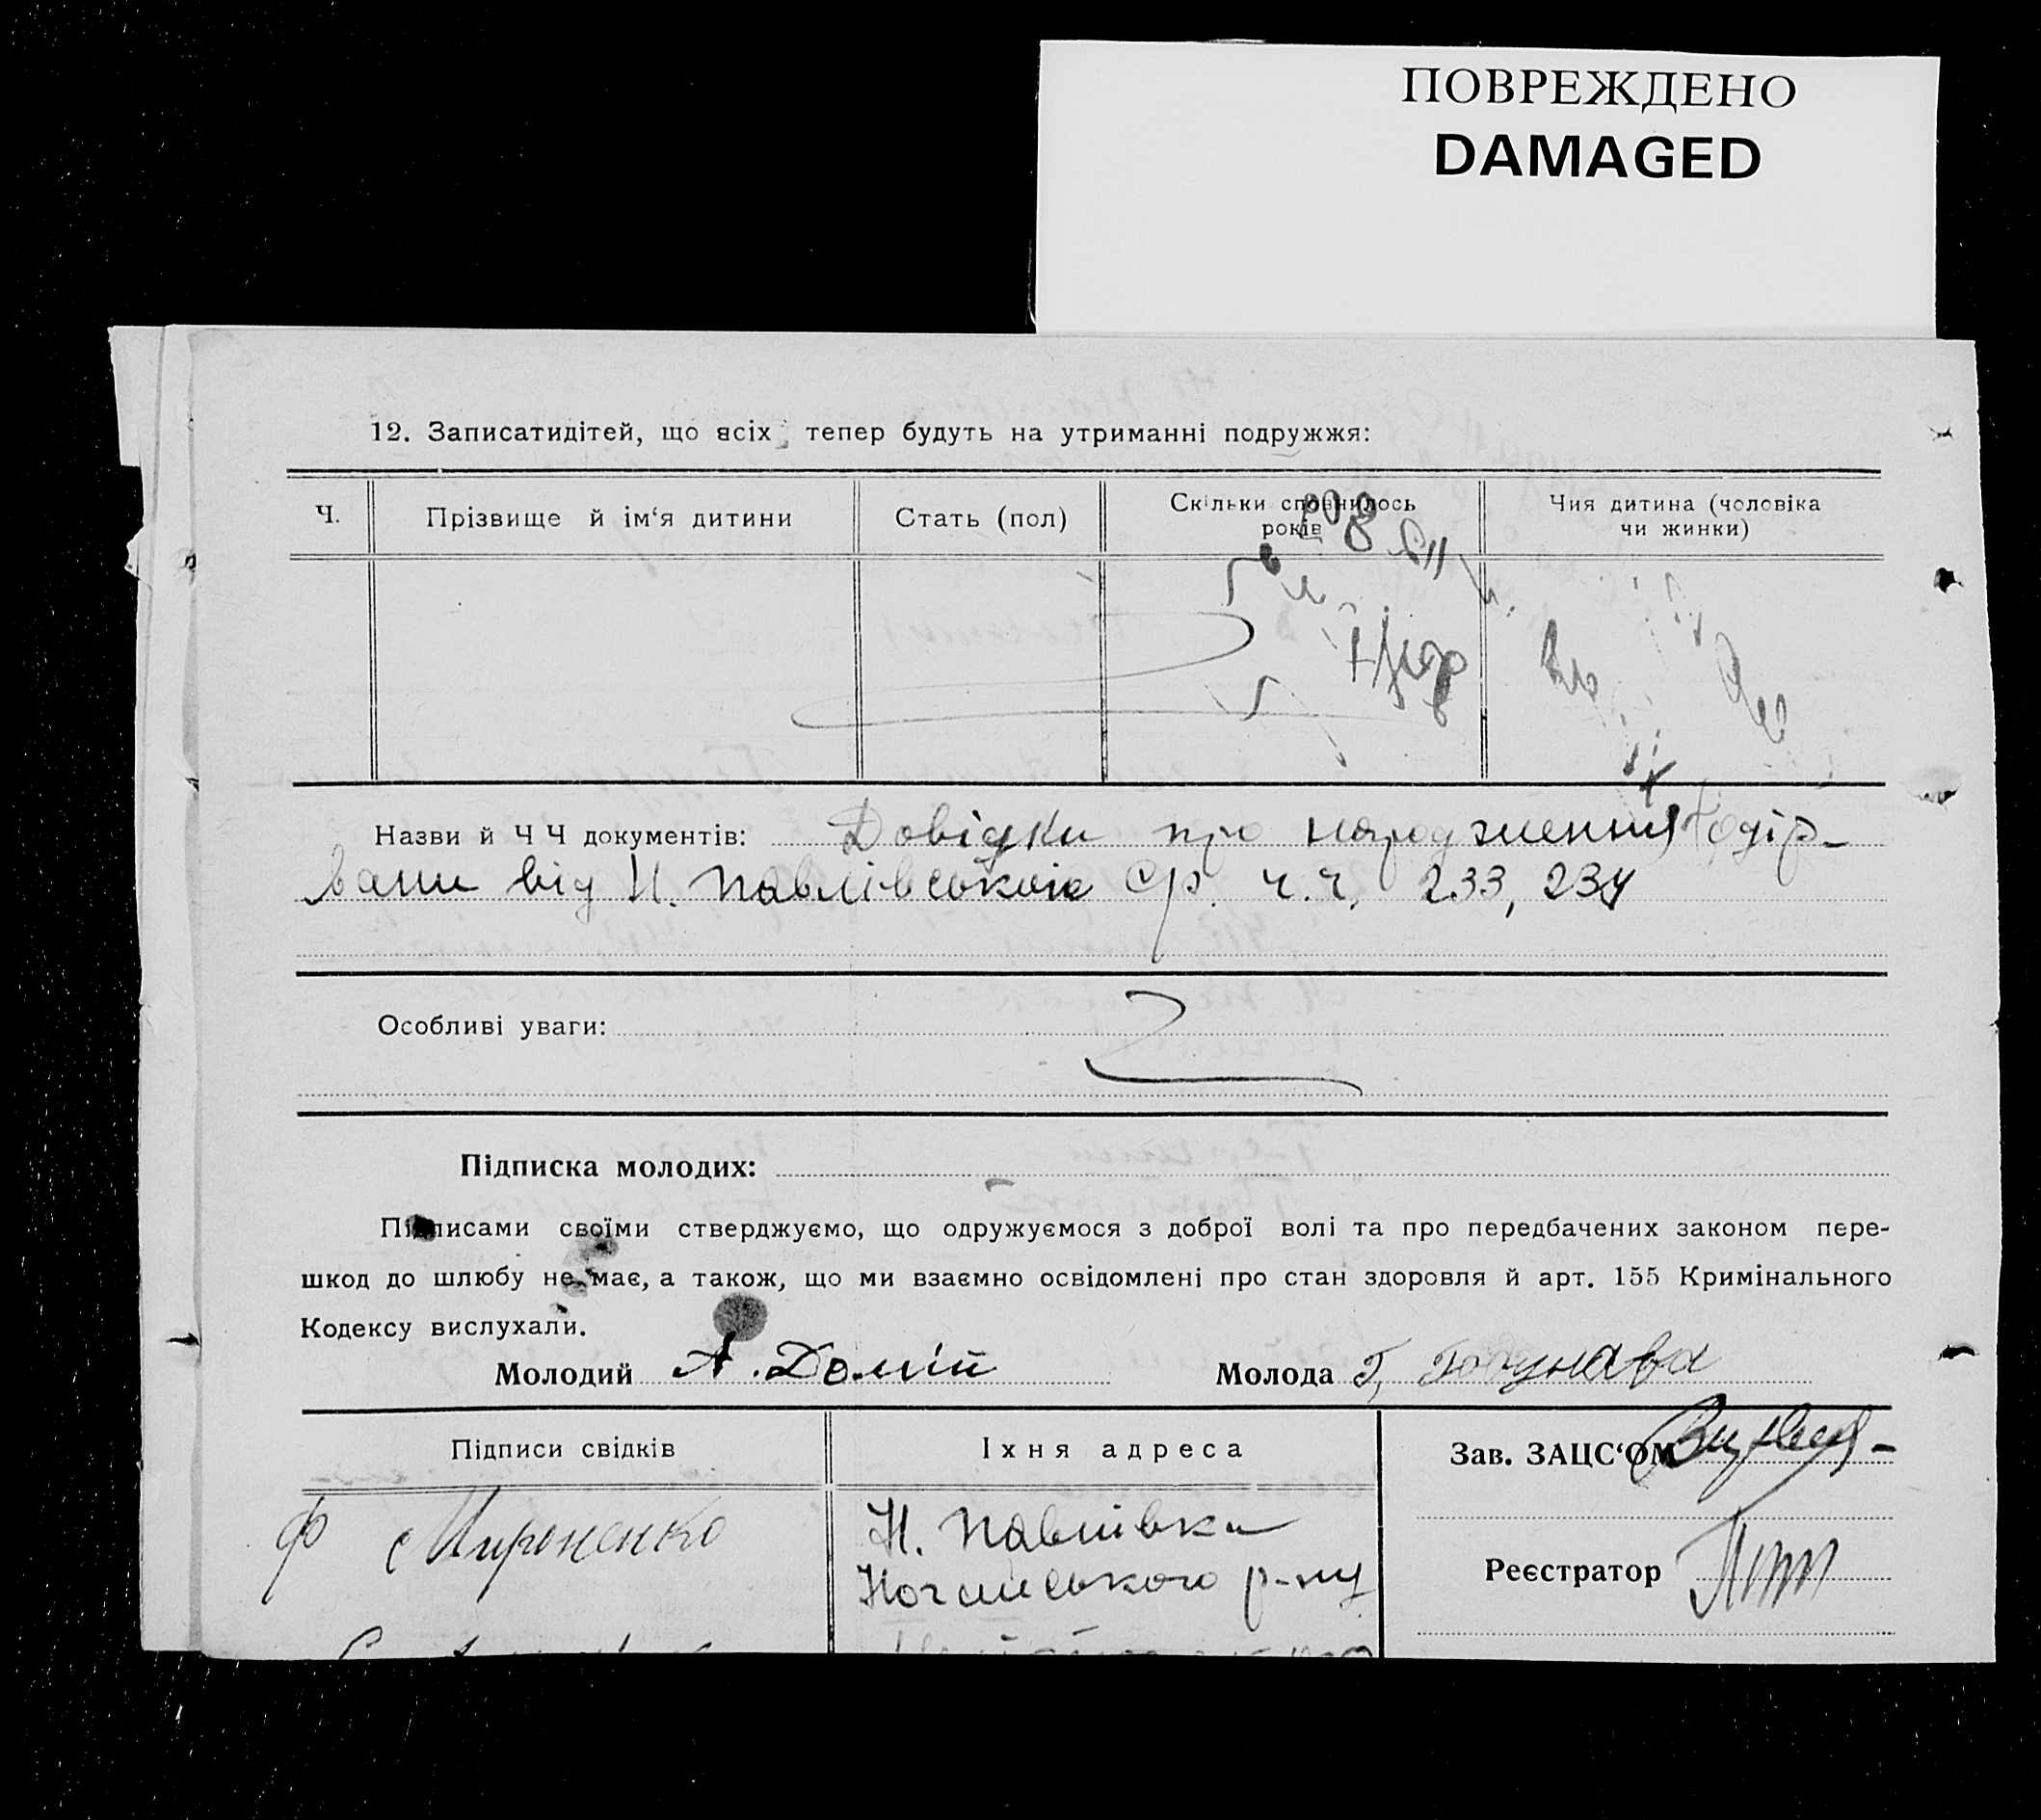 ПОВРЕЖДЕНО
DAMAGED
12. Записатидітей, що всіх тепер будуть на утриманні подружжя:
Ч.
Прізвище й ім‘я дитини
Стать (пол)
Скільки сповнилось
років
Чия дитина (чоловіка
чи жинки)
Назви й Ч Ч документів: Довідки про народження одір-
вани від Н. Павлівської с/р. ч.ч. 233, 234
Особливі уваги:
Підписка молодих:
Підписами своїми стверджуємо, що одружуємося з доброї волі та про передбачених законом пере-
шкод до шлюбу не має, а також, що ми взаємно освідомлені про стан здоровля й арт. 155 Кримінального
Кодексу вислухали.
Молодий А. Домій Молода Г.
Підписи свідків
Іхня адреса
Зав. ЗАЦС‘ОМ
Ф Мироненко
Н. Павлівка
р-ну
Реєстратор